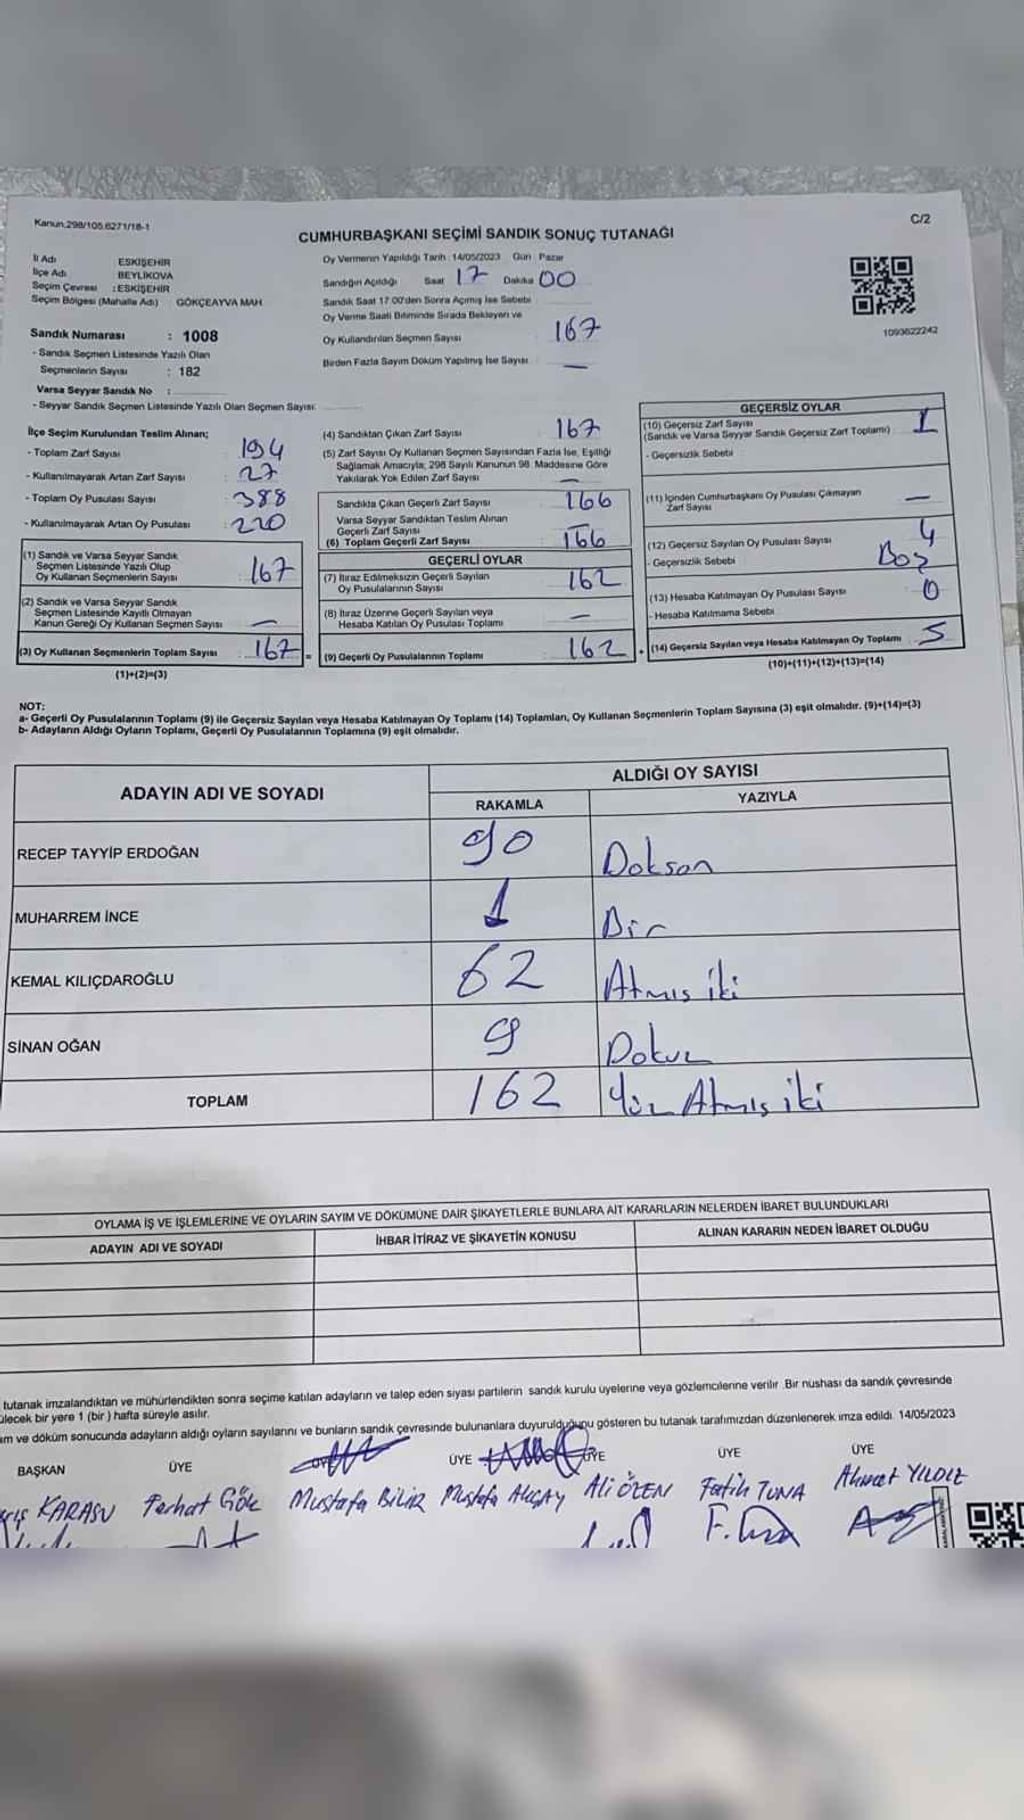 Kanun.298/105.6271/18-1
C/2
CUMHURBAŞKANI SEÇİMİ SANDIK SONUÇ TUTANAĞI
İl Adı ESKİŞEHİR
İlçe Adı BEYLİKOVA
Seçim Çevresi :ESKİŞEHİR
Seçim Bölgesi (Mahalle Adı) GÖKÇEAYVA MAH.
Sandık Numarası : 1008
- Sandık Seçmen Listesinde Yazılı Olan
Seçmenlerin Sayısı : 182
Varsa Seyyar Sandık No :
- Seyyar Sandık Seçmen Listesinde Yazılı Olan Seçmen Sayısı:
Oy Vermenin Yapıldığı Tarih : 14/05/2023 Gün : Pazar
Sandığın Açıldığı Saat 17 Dakika 00
Sandık Saat 17.00'den Sonra Açılmış İse Sebebi
Oy Verme Saati Bitiminde Sırada Bekleyen ve
Oy Kullandırılan Seçmen Sayısı 167
Birden Fazla Sayım Döküm Yapılmış İse Sayısı —
1093622242
İlçe Seçim Kurulundan Teslim Alınan;
- Toplam Zarf Sayısı 194
- Kullanılmayarak Artan Zarf Sayısı : 27
- Toplam Oy Pusulası Sayısı 388
- Kullanılmayarak Artan Oy Pusulası : 220
(1) Sandık ve Varsa Seyyar Sandık
Seçmen Listesinde Yazılı Olup
Oy Kullanan Seçmenlerin Sayısı : 167
(2) Sandık ve Varsa Seyyar Sandık
Seçmen Listesinde Kayıtlı Olmayan
Kanun Gereği Oy Kullanan Seçmen Sayısı : —
(3) Oy Kullanan Seçmenlerin Toplam Sayısı : 167 =
(1)+(2)=(3)
(4) Sandıktan Çıkan Zarf Sayısı 167
(5) Zarf Sayısı Oy Kullanan Seçmen Sayısından Fazla İse, Eşitliği
Sağlamak Amacıyla; 298 Sayılı Kanunun 98. Maddesine Göre
Yakılarak Yok Edilen Zarf Sayısı —
Sandıkta Çıkan Geçerli Zarf Sayısı : 166
Varsa Seyyar Sandıktan Teslim Alınan
Geçerli Zarf Sayısı
(6) Toplam Geçerli Zarf Sayısı : 166
GEÇERLİ OYLAR
(7) İtiraz Edilmeksizin Geçerli Sayılan
Oy Pusulalarının Sayısı : 162
(8) İtiraz Üzerine Geçerli Sayılan veya
Hesaba Katılan Oy Pusulası Toplamı —
(9) Geçerli Oy Pusulalarının Toplamı : 162 +
GEÇERSİZ OYLAR
(10) Geçersiz Zarf Sayısı
(Sandık ve Varsa Seyyar Sandık Geçersiz Zarf Toplamı) : 1
- Geçersizlik Sebebi
(11) İçinden Cumhurbaşkanı Oy Pusulası Çıkmayan
Zarf Sayısı : —
(12) Geçersiz Sayılan Oy Pusulası Sayısı 4
- Geçersizlik Sebebi Boş
(13) Hesaba Katılmayan Oy Pusulası Sayısı 0
- Hesaba Katılmama Sebebi
(14) Geçersiz Sayılan veya Hesaba Katılmayan Oy Toplamı 5
(10)+(11)+(12)+(13)=(14)
NOT:
a- Geçerli Oy Pusulalarının Toplamı (9) ile Geçersiz Sayılan veya Hesaba Katılmayan Oy Toplamı (14) Toplamları, Oy Kullanan Seçmenlerin Toplam Sayısına (3) eşit olmalıdır. (9)+(14)=(3)
b- Adayların Aldığı Oyların Toplamı, Geçerli Oy Pusulalarının Toplamına (9) eşit olmalıdır.
ADAYIN ADI VE SOYADI
ALDIĞI OY SAYISI
RAKAMLA YAZIYLA
RECEP TAYYİP ERDOĞAN 90 Doksan
MUHARREM İNCE 1 Bir
KEMAL KILIÇDAROĞLU 62 Atmış iki
SİNAN OĞAN 9 Dokuz
TOPLAM 162 Yüz Atmış iki
OYLAMA İŞ VE İŞLEMLERİNE VE OYLARIN SAYIM VE DÖKÜMÜNE DAİR ŞİKAYETLERLE BUNLARA AİT KARARLARIN NELERDEN İBARET BULUNDUKLARI
ADAYIN ADI VE SOYADI İHBAR İTİRAZ VE ŞİKAYETİN KONUSU ALINAN KARARIN NEDEN İBARET OLDUĞU
tutanak imzalandıktan ve mühürlendikten sonra seçime katılan adayların ve talep eden siyasi partilerin sandık kurulu üyelerine veya gözlemcilerine verilir. Bir nüshası da sandık çevresinde
ülecek bir yere 1 (bir) hafta süreyle asılır.
ım ve döküm sonucunda adayların aldığı oyların sayılarını ve bunların sandık çevresinde bulunanlara duyurulduğunu gösteren bu tutanak tarafımızdan düzenlenerek imza edildi. 14/05/2023
BAŞKAN ÜYE ÜYE ÜYE ÜYE ÜYE
KARASU Ferhat Gök Mustafa BİLİR Mustafa AKÇAY Ali ÖZEN Fatih TUNA Ahmet YILDIZ